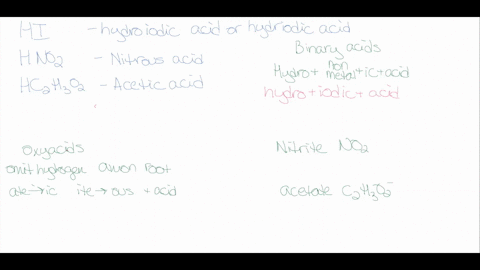 HI - hydroiodic acid or hydriodic acid
HNO2 - Nitrous acid
HC2H3O2 - Acetic acid
Binary acids
Hydro + non metal + ic + acid
hydro + iodic + acid
oxyacids
omit hydrogen anion root
ate → ic ite → ous + acid
Nitrite NO2
acetate C2H3O2-